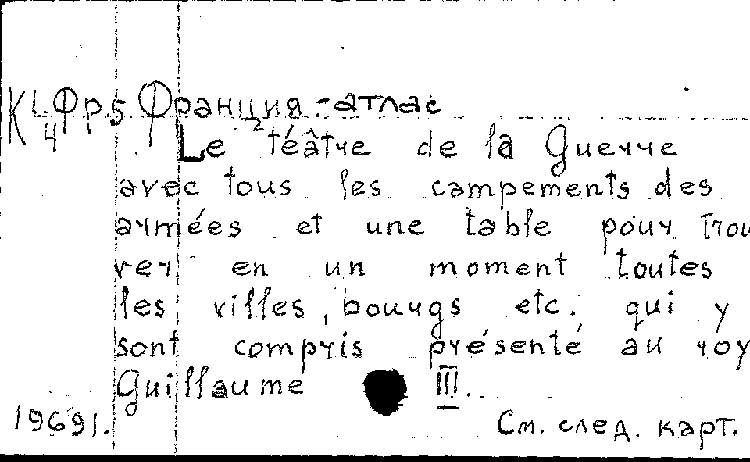 К 4 Фр5 Франция.-атлас
Le téâtre de la Guerre
avec tous les campements des
armées et une table pour trou
ver en un moment toutes
les villes, bourgs etc. qui y
sont compris présenté au roy
Guillaume III.
19691. См. след. карт.